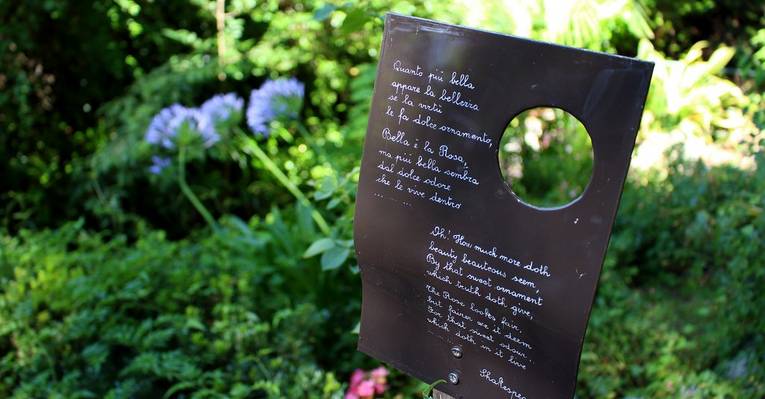 Quanto più bella
appare la bellezza
se la virtù
le fa dolce ornamento,
Bella è la Rosa,
ma più bella sembra
dal dolce odore
che le vive dentro
... ...
Oh! How much more doth
beauty beauteous seem,
By that sweet ornament
which truth doth give,
The Rose lookes fair,
but fairer we it deem
For that sweet odour...
which doth in it live
Shakespea